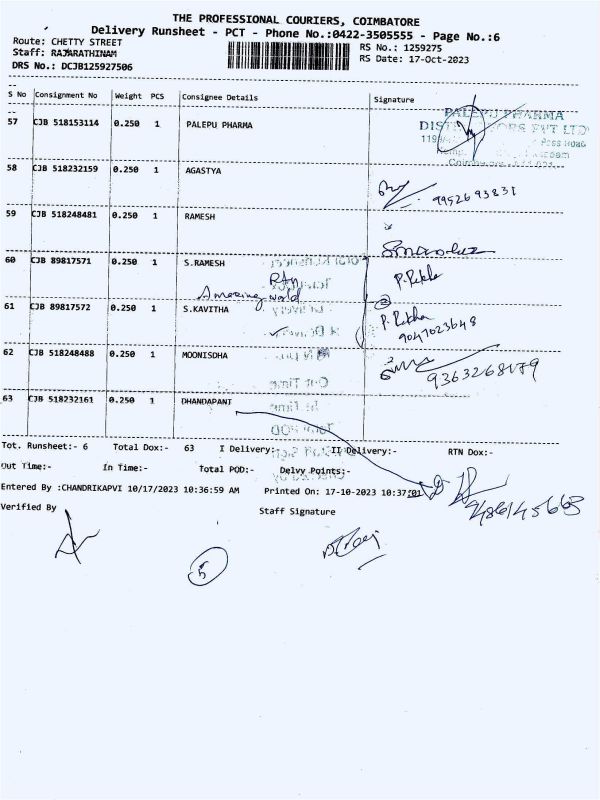 THE PROFESSIONAL COURIERS, COIMBATORE
Delivery Runsheet - PCT - Phone No.:0422-3505555 - Page No.:6
Route: CHETTY STREET
RS No.: 1259275
Staff: RAJARATHINAM
RS Date: 17-Oct-2023
DRS No.: DCJB125927506
S No Consignment No Weight PCS Consignee Details Signature
57 CJB 518153114 0.250 1 PALEPU PHARMA
PALEPU PHARMA
58 CJB 518232159 0.250 1 AGASTYA
9952693831
59 CJB 518248481 0.250 1 RAMESH
60 CJB 89817571 0.250 1 S.RAMESH
P. Rekha
Amazing world
61 CJB 89817572 0.250 1 S.KAVITHA
P. Rekha
9047023648
62 CJB 518248488 0.250 1 MOONISDHA
9363268179
63 CJB 518232161 0.250 1 DHANDAPANI
Tot. Runsheet:- 6 Total Dox:- 63 I Delivery:- II Delivery:- RTN Dox:-
Out Time:- In Time:- Total POD:- Delvy Points:-
Entered By :CHANDRIKAPVI 10/17/2023 10:36:59 AM Printed On: 17-10-2023 10:37:01
Verified By Staff Signature
5